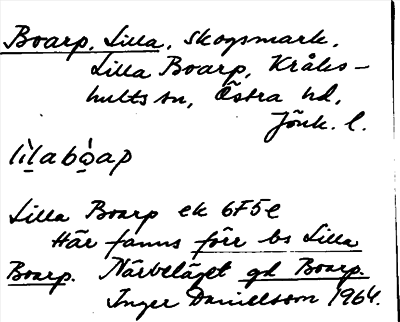 Boarp, Lilla, skogsmark,
Lilla Boarp, Kråks-
hults sn, Östra hd,
Jönk. l.
lìlabòap
Lilla Boarp ek 6F5e
Här fanns förr bs Lilla
Boarp. Närbeläget gd Boarp.
Inger Danielsson 1964.